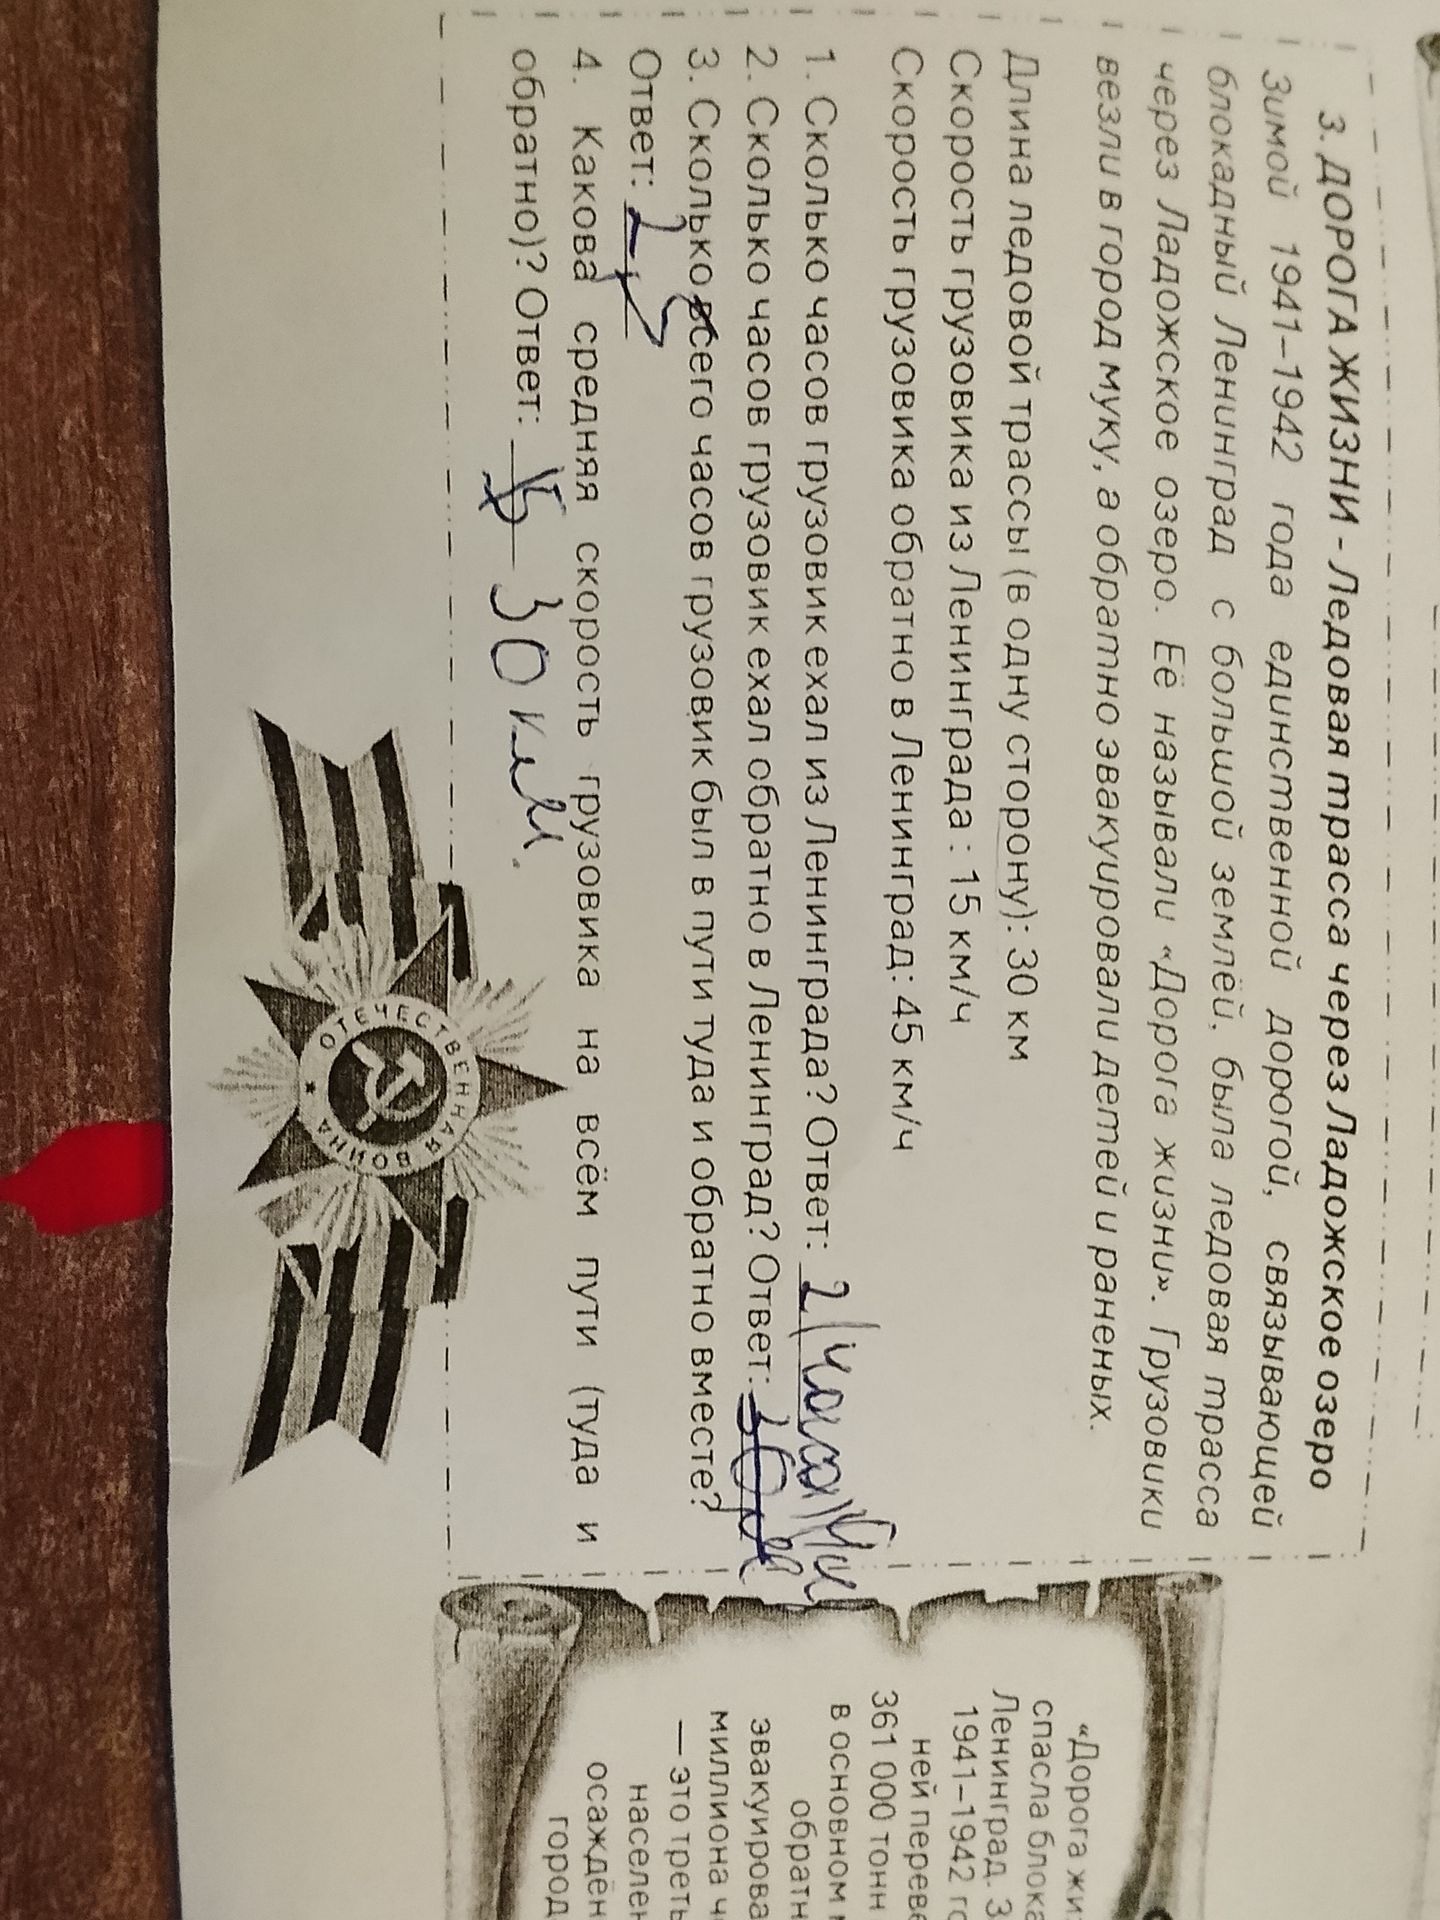 3. ДОРОГА ЖИЗНИ - Ледовая трасса через Ладожское озеро
Зимой 1941–1942 года единственной дорогой, связывающей
блокадный Ленинград с большой землёй, была ледовая трасса
через Ладожское озеро. Её называли «Дорога жизни». Грузовики
везли в город муку, а обратно эвакуировали детей и раненых.
Длина ледовой трассы (в одну сторону): 30 км
Скорость грузовика из Ленинграда : 15 км/ч
Скорость грузовика обратно в Ленинград: 45 км/ч
1. Сколько часов грузовик ехал из Ленинграда? Ответ: 2
2. Сколько часов грузовик ехал обратно в Ленинград? Ответ:
3. Сколько всего часов грузовик был в пути туда и обратно вместе?
Ответ: 2
4. Какова средняя скорость грузовика на всём пути (туда и
обратно)? Ответ: 30 км.
ОТЕЧЕСТВЕННАЯ ВОЙНА
«Дорога жи
спасла блока
Ленинград. З
1941–1942 го
ней переве
361 000 тонн
в основном
обратн
эвакуирова
миллиона ч
— это треть
населен
осаждён
город